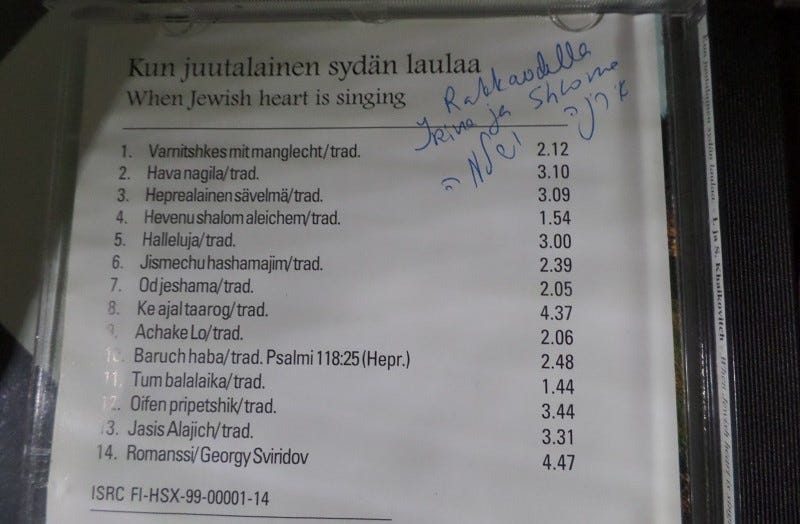 Kun juutalainen sydän laulaa
When Jewish heart is singing
Rakkaudella
Irina ja Shlomo
אירנה ושלמה
1. Varnitshkes mit manglecht/trad. 2.12
2. Hava nagila/trad. 3.10
3. Heprealainen sävelmä/trad. 3.09
4. Hevenu shalom aleichem/trad. 1.54
5. Halleluja/trad. 3.00
6. Jismechu hashamajim/trad. 2.39
7. Od jeshama/trad. 2.05
8. Ke ajal taarog/trad. 4.37
9. Achake Lo/trad. 2.06
10. Baruch haba/trad. Psalmi 118:25 (Hepr.) 2.48
11. Tum balalaika/trad. 1.44
12. Oifen pripetshik/trad. 3.44
13. Jasis Alajich/trad. 3.31
14. Romanssi/Georgy Sviridov 4.47
ISRC FI-HSX-99-00001-14
Kun juutalainen sydän laulaa I. ja S. Khaikovitch - When Jewish heart is